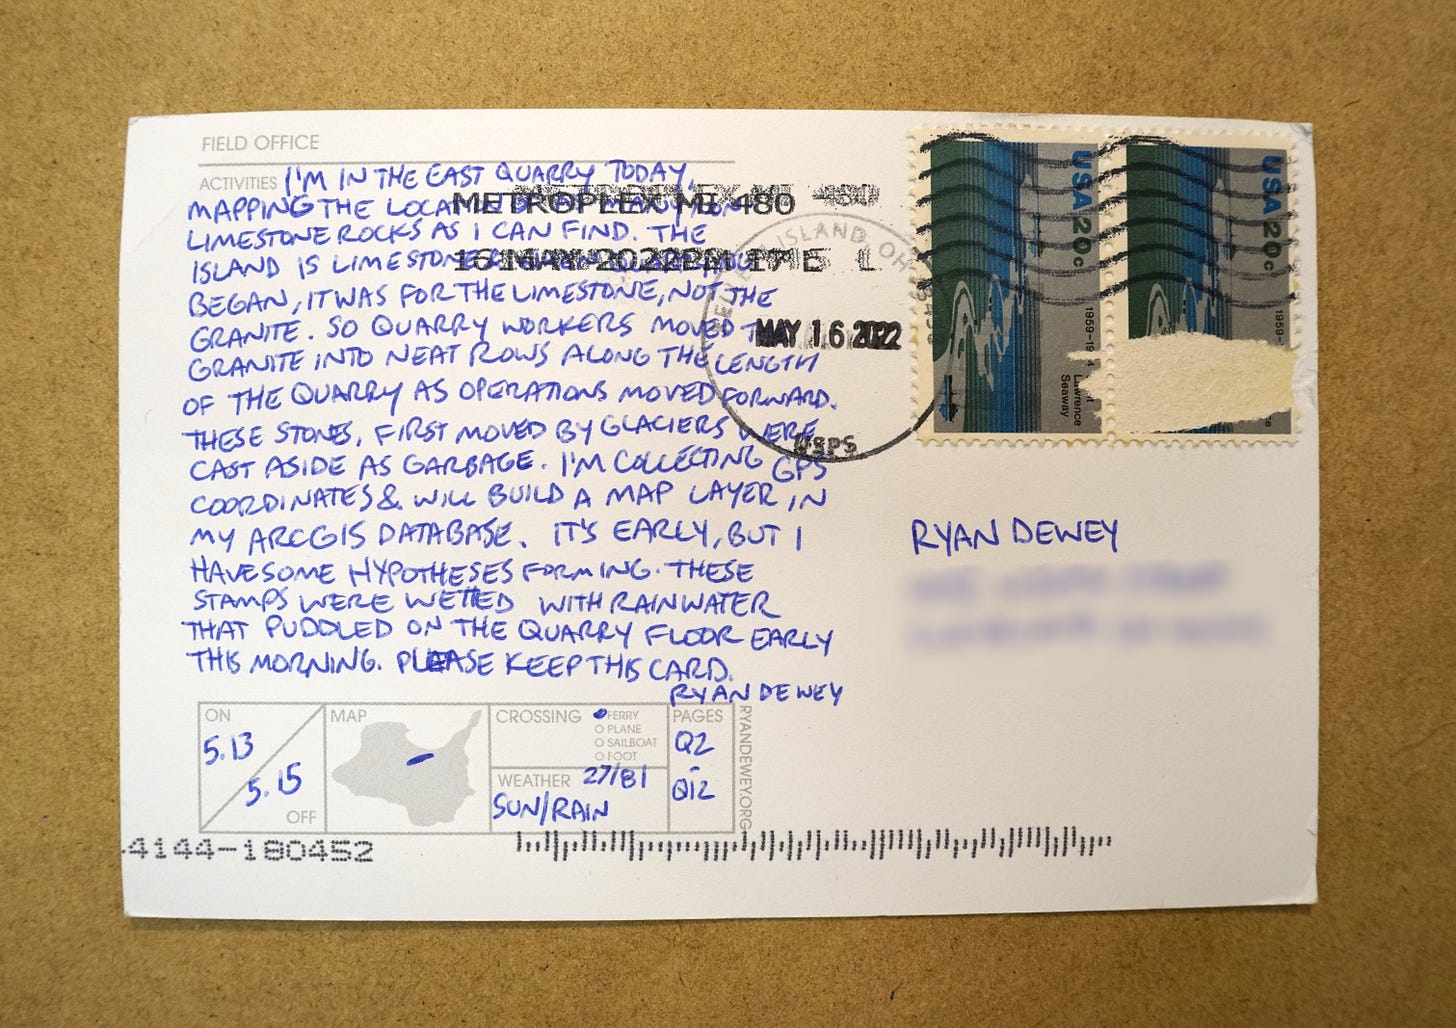 FIELD OFFICE
ACTIVITIES I'M IN THE EAST QUARRY TODAY,
MAPPING THE
LIMESTONE ROCKS AS I CAN FIND. THE
ISLAND IS LIMESTONE
BEGAN, IT WAS FOR THE LIMESTONE, NOT THE
GRANITE. SO QUARRY WORKERS MOVED
GRANITE INTO NEAT ROWS ALONG THE LENGTH
OF THE QUARRY AS OPERATIONS MOVED FORWARD.
THESE STONES, FIRST MOVED BY GLACIERS WERE
CAST ASIDE AS GARBAGE. I'M COLLECTING GPS
COORDINATES & WILL BUILD A MAP LAYER IN
MY ARCGIS DATABASE. IT'S EARLY, BUT I
HAVE SOME HYPOTHESES FORMING. THESE
STAMPS WERE WETTED WITH RAINWATER
THAT PUDDLED ON THE QUARRY FLOOR EARLY
THIS MORNING. PLEASE KEEP THIS CARD.
RYAN DEWEY
METROPLEX MI 480
16 MAY 2022 PM 17 L
ISLAND, OH
MAY 16 2022
USPS
USA 20c
1959-19
Lawrence
Seaway
USA 20c
1959-
RYAN DEWEY
ON
5.13
5.15
OFF
MAP
CROSSING
FERRY
PLANE
SAILBOAT
FOOT
WEATHER 27/81
SUN/RAIN
PAGES
Q2
-
Q12
RYANDEWEY.ORG
4144-180452